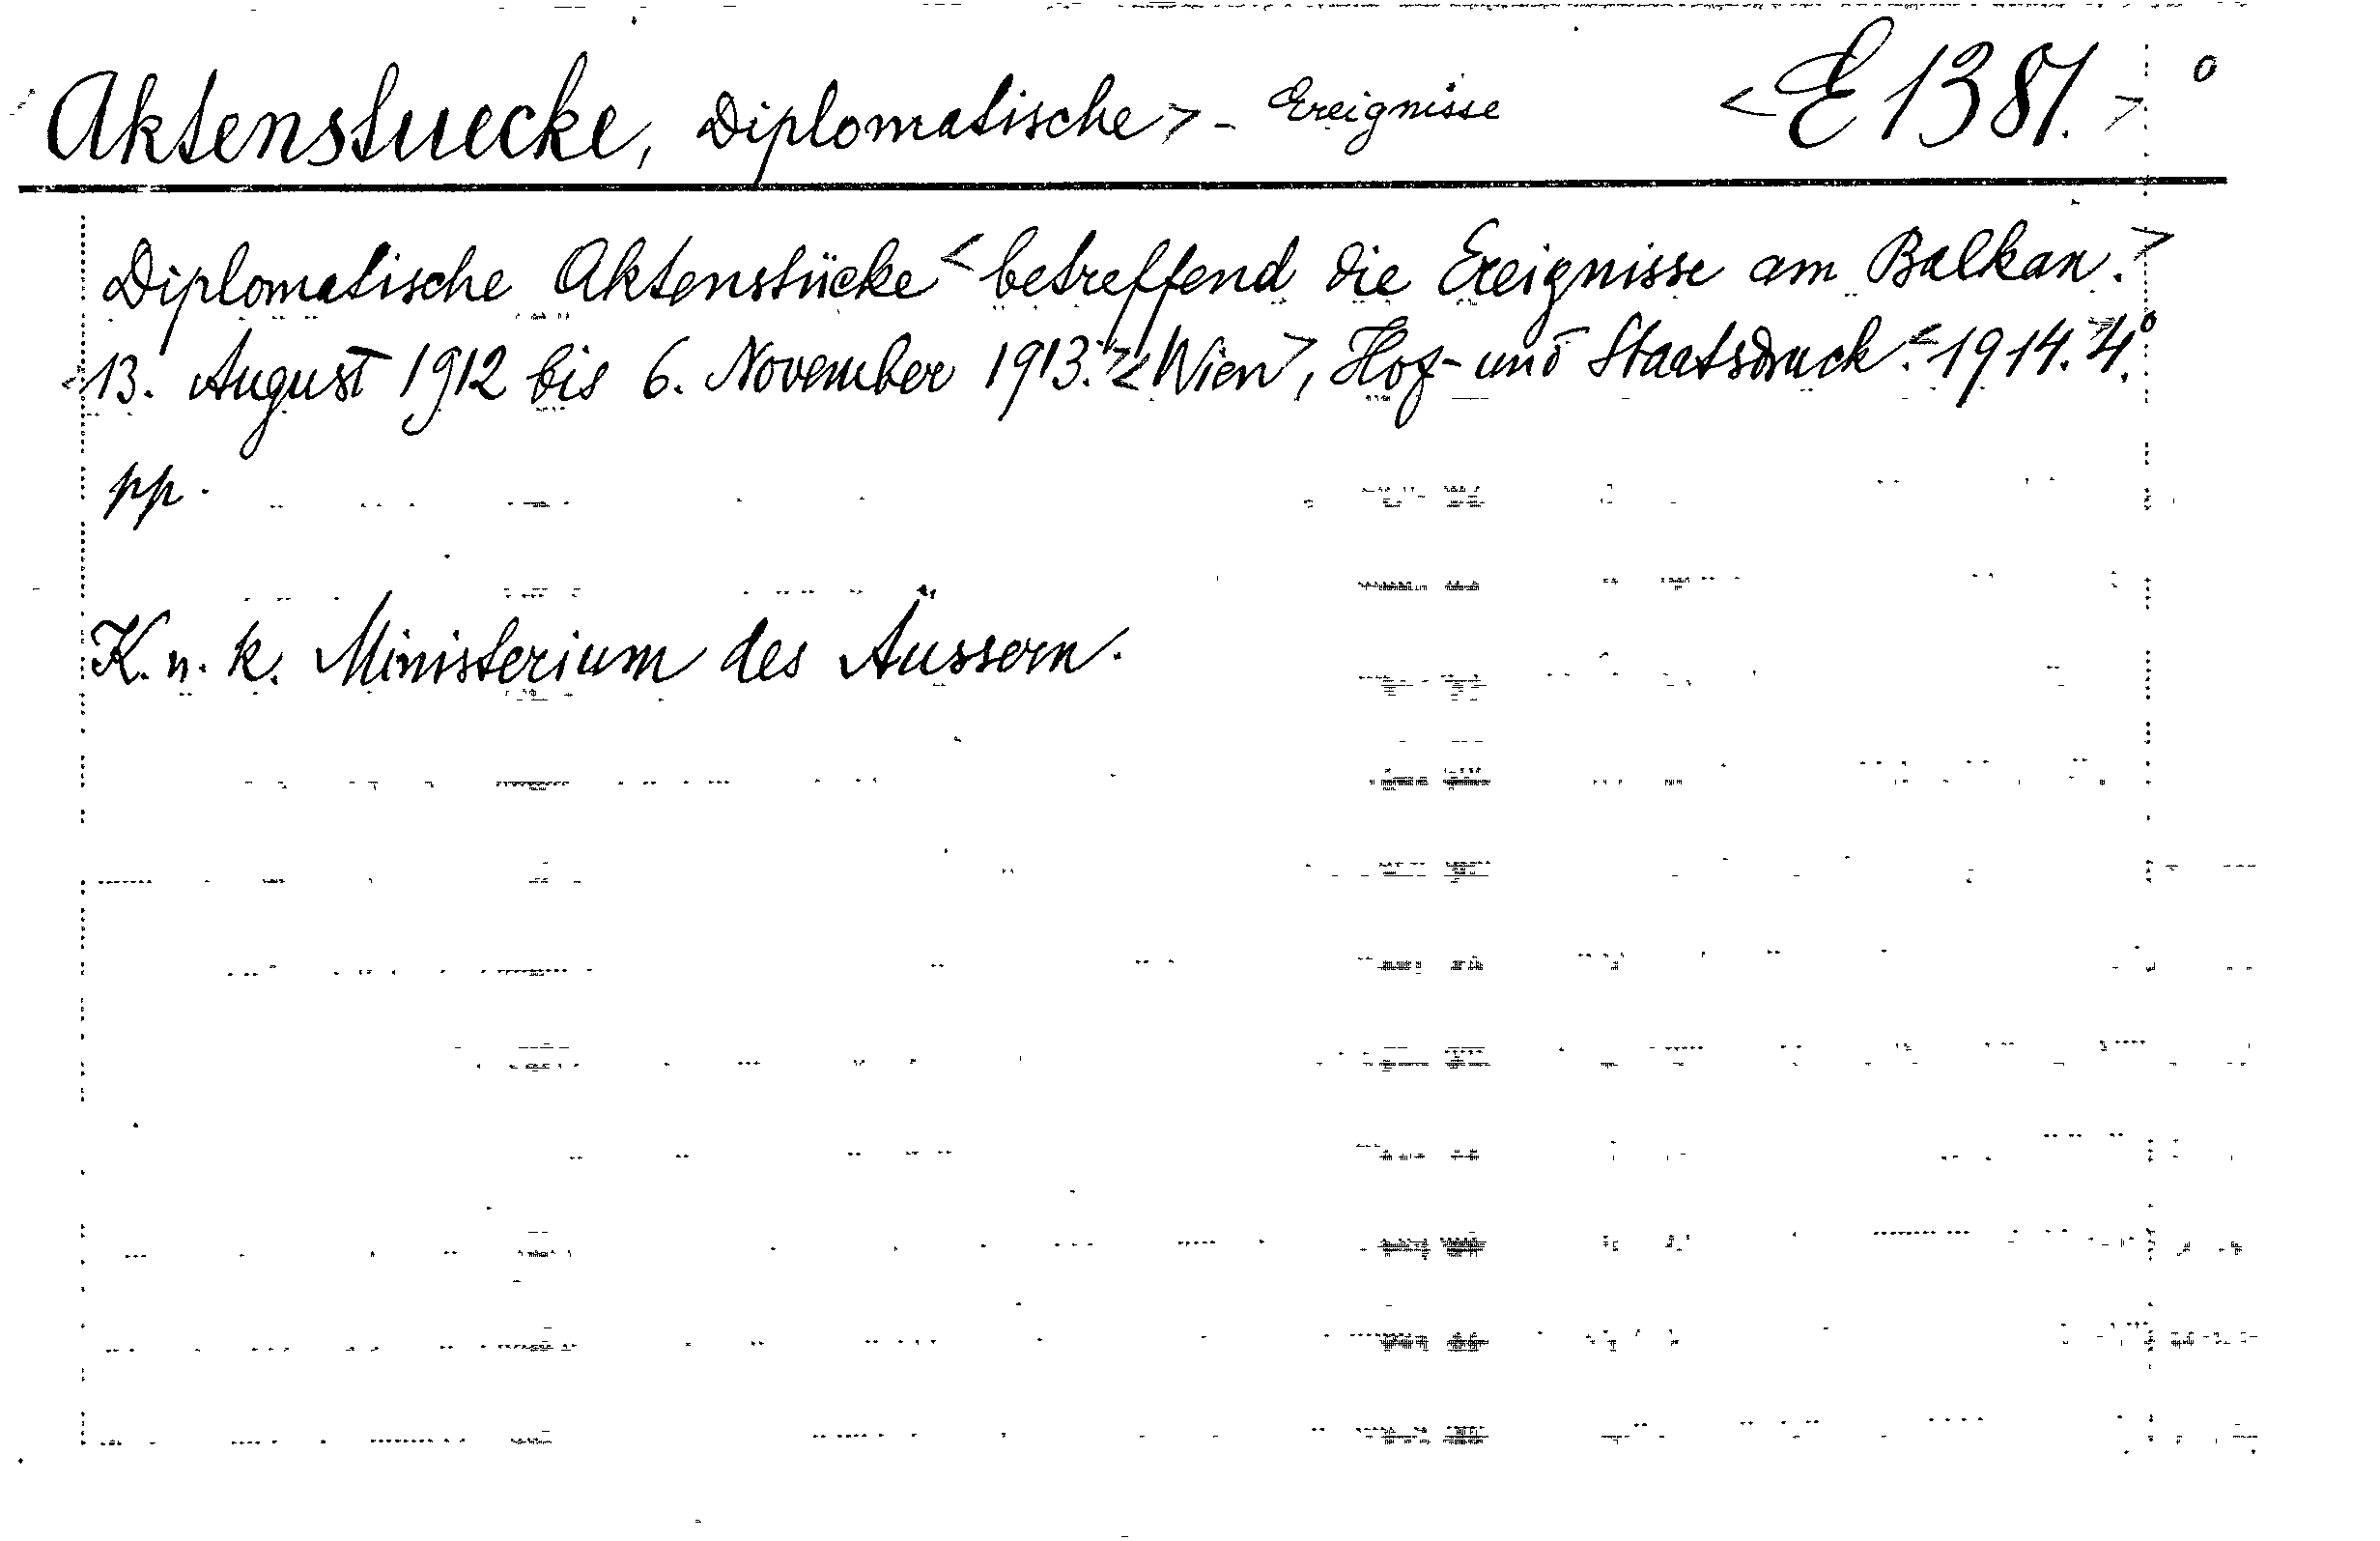 <Aktenstuecke, Diplomatische> - Ereignisse <E 1381.> o
Diplomatische Aktenstücke <betreffend die Ereignisse am Balkan.>
<13. August 1912 bis 6. November 1913.> <Wien>, Hof- und Staatsdruck. <1914.> 4.°
pp.
K. u. k. Ministerium des Äussern.